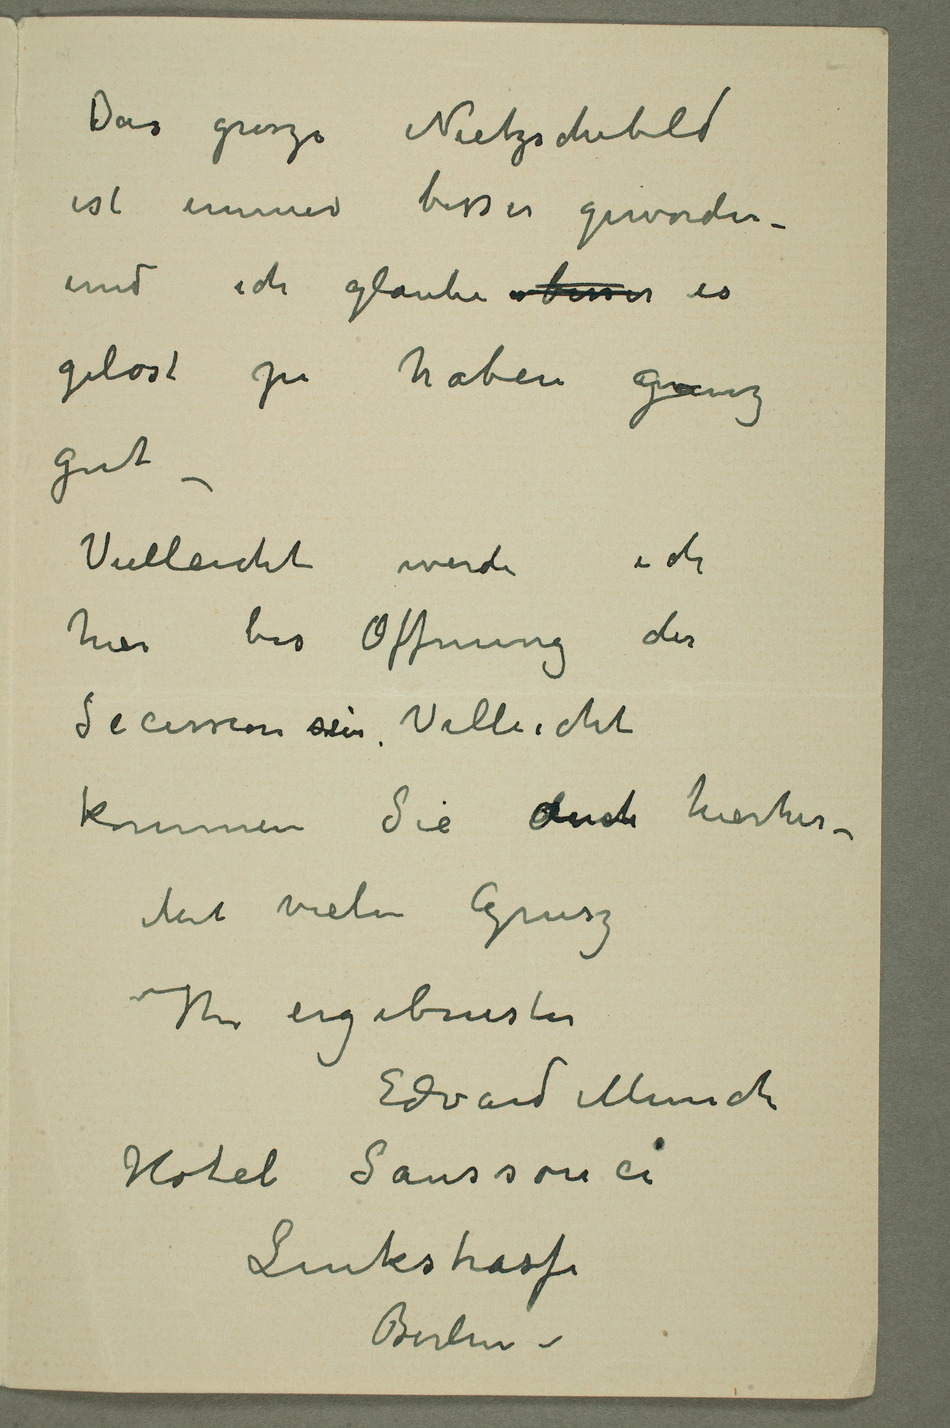 Das grosze Nietzschebild
ist immer besser geworden –
und ich glaube besser es
gelost zu haben ganz
gut –
Vielleicht werde ich
hier bis Offnung der
Secession sein. Villeicht
kommen Sie auch hierher –
Mit vielen Grusz
Ihr ergebnester
Edvard Munch
Hotel Sanssouci
Linkstrasse
Berlin –